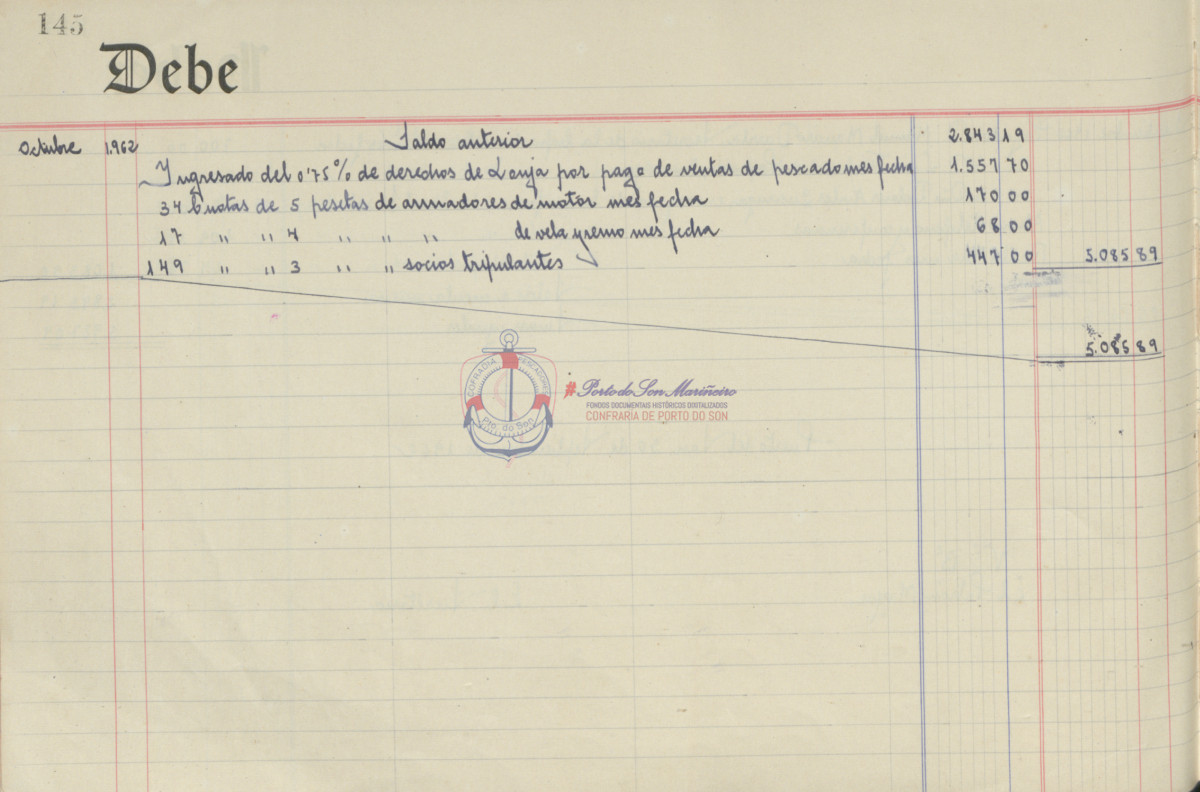 145
Debe
Octubre 1.962 Saldo anterior 2.843 19
Ingresado del 0'75% de derechos de Lonja por pago de ventas de pescado mes fecha 1.557 70
34 Cuotas de 5 pesetas de armadores de motor mes fecha 170 00
17 " " 4 " " " de vela y remo mes fecha 68 00
149 " " 3 " " socios tripulantes 447 00 5.085 89
5.085 89
COFRADIA PESCADORES
Pto. do Son
#Porto do Son Mariñeiro
FONDOS DOCUMENTAIS HISTÓRICOS DIXITALIZADOS
CONFRARÍA DE PORTO DO SON